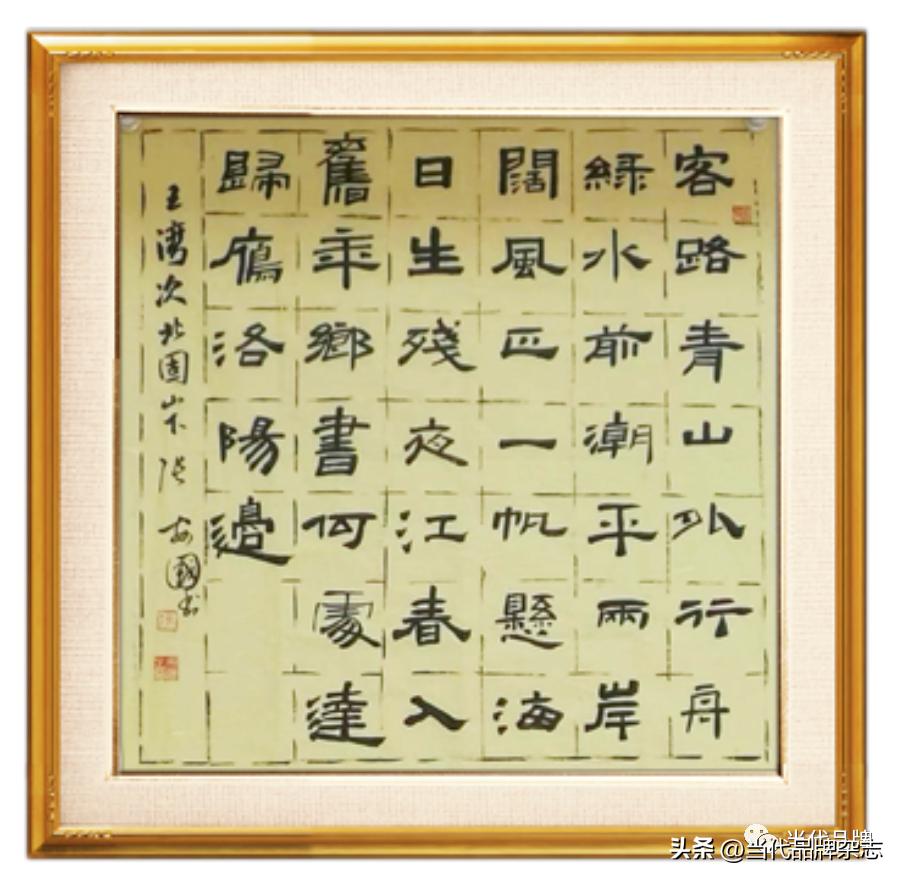 客路青山外行舟
綠水前潮平兩岸
闊風正一帆懸海
日生殘夜江春入
舊年鄉書何處達
歸鴈洛陽邊
王灣次北固山下 张安國书
当代品牌
头条 @当代品牌杂志